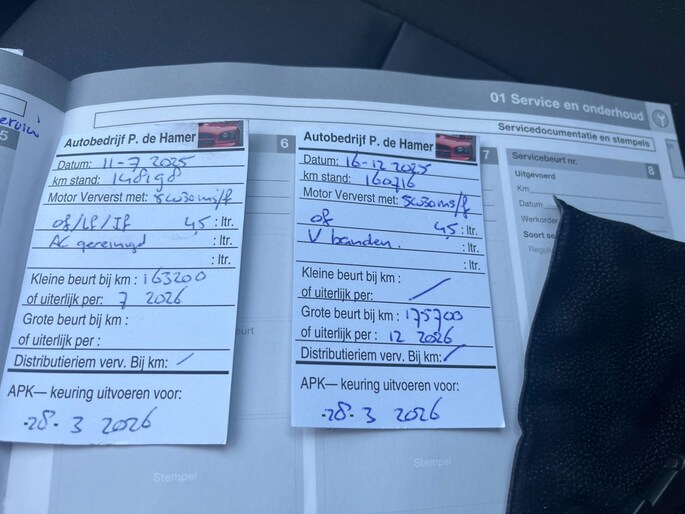 01 Service en onderhoud
Servicedocumentatie en stempels
Autobedrijf P. de Hamer
Datum: 11-7 2025
km stand: 148198
Motor Ververst met: 5w30 ms/f
of/lf/If 4,5 : ltr.
AC gereinigd : ltr.
: ltr.
Kleine beurt bij km : 163200
of uiterlijk per: 7 2026
Grote beurt bij km :
of uiterlijk per :
Distributieriem verv. Bij km: /
APK— keuring uitvoeren voor:
-28- 3 2026
Stempel
6
Autobedrijf P. de Hamer
Datum: 16-12 2025
km stand: 160716
Motor Ververst met: 5w30 ms/f
of 4,5 : ltr.
V banden. : ltr.
: ltr.
Kleine beurt bij km :
of uiterlijk per: /
Grote beurt bij km : 175700
of uiterlijk per : 12 2026
Distributieriem verv. Bij km: /
APK— keuring uitvoeren voor:
-28- 3 2026
Stempel
7
Servicebeurt nr. 8
Uitgevoerd
Km
Datum
Werkorder
Soort se
Regul